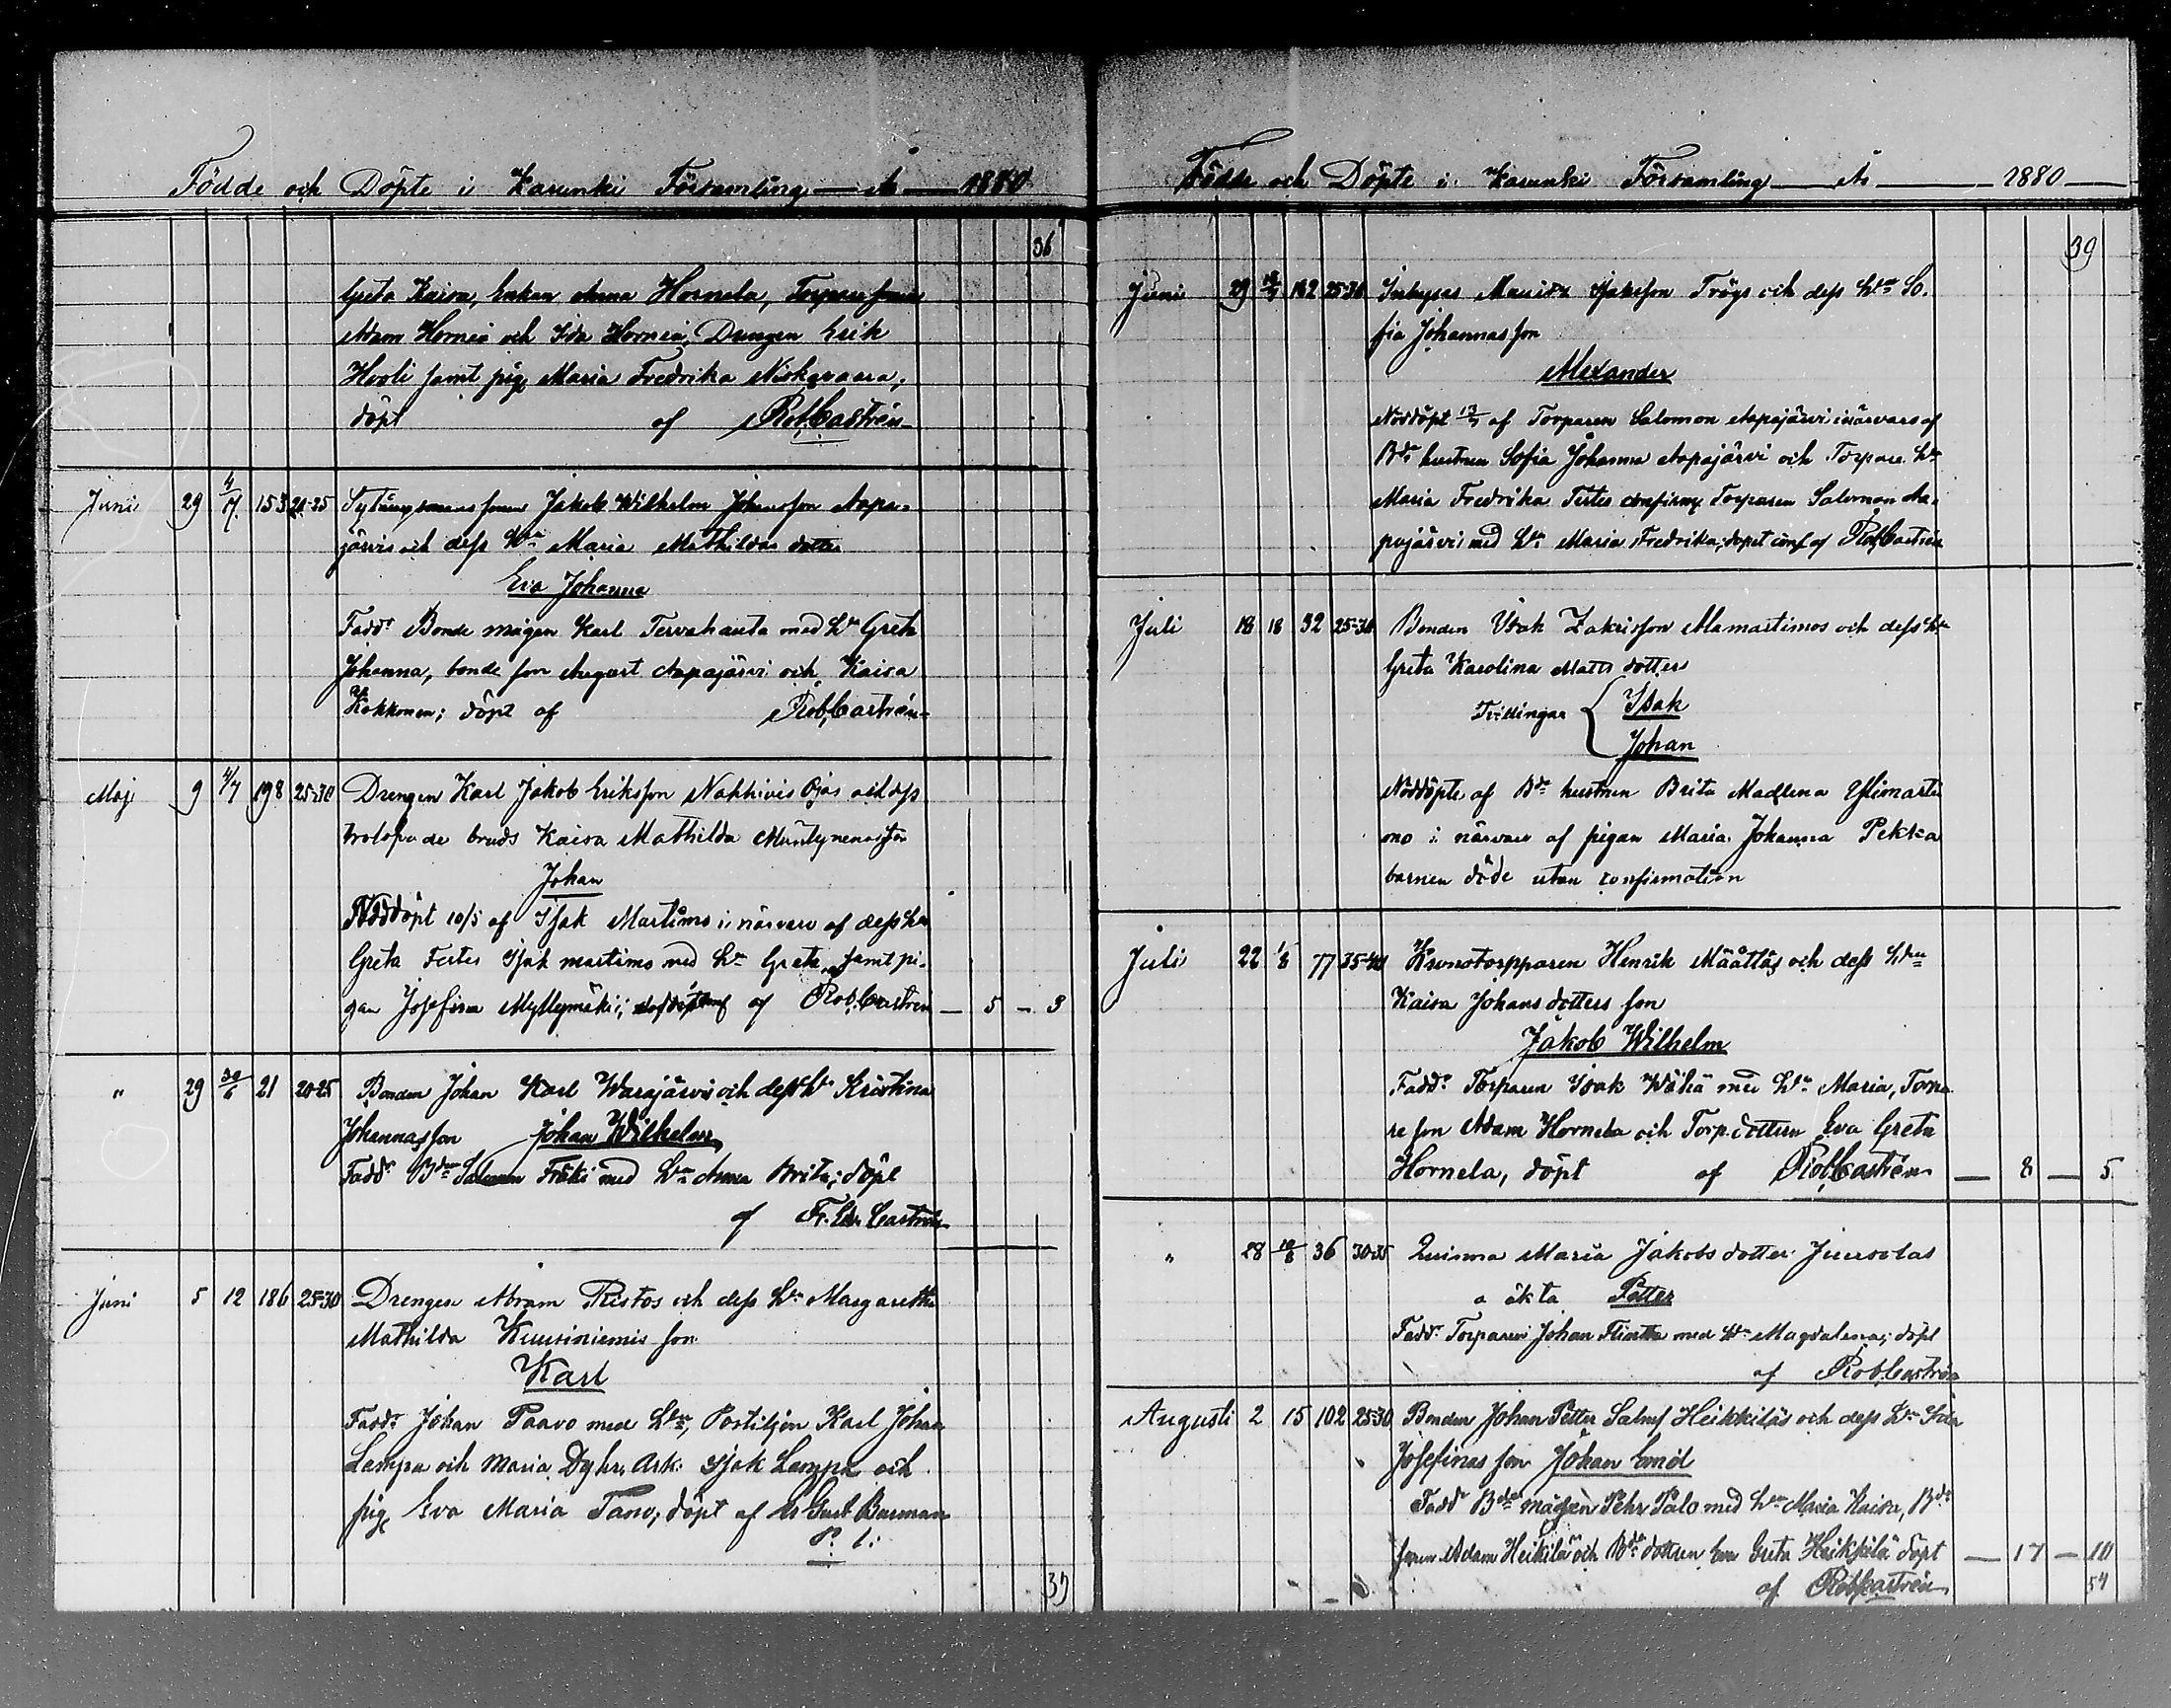 Födde och Döpte i Karunki Församling — År — 1880
36
Greta Kaisa, Enkan Anna Hornela, Torparesonen
Adam Horneia och Ida Horneia, Drengen Erik
Hooli samt pig. Maria Fredrika Niskavaara,
döpt af Rob. Castrén
Juni 29 4/7 153 20-25 Jakob Wilhelm Johansson Aapa-
järvis och dess H:u Maria Mathildas dotter
Eva Johanna
Fadd: Bonde mågen Karl Tervahauta med H:u Greta
Johanna, bonde son August Aapajärvi och Kaisa
Kokkonen; döpt af Rob. Castrén
Maj 9 4/7 198 25-30 Drengen Karl Jakob Eriksson Nakkivis Ojas och dess
trolofvade bruds Kaisa Mathilda Mäntynenas son
Johan
Nöddöpt 10/5 af Isak Martimo i närvaro af dess h:u
Greta Testes Isak martimo med H:u Greta samt pi-
gan Josefina Myllymäki; af Rob. Castrén — 5 — 3
" 29 30/6 21 20-25 Bonden Johan Karl Warajärvis och dess H:u Kristina
Johannas son Johan Wilhelm
Fadd: B:den Salomon Friki med H:u Anna Brita; döpt
af Fr. Edv. Castrén
Juni 5 12 186 25-30 Drengen Abram Ristos och dess H:u Margaretha
Mathilda Kuusiniemis son
Karl
Fadd: Johan Paavo med H:u, Postiljon Karl Johan
Lampa och Maria Dyhr, Ark. Isak Lampa och
pig. Eva Maria Tano; döpt af Gust. Burman
P. l.
39
Födde och Döpte i Karunki Församling — År — 1880
39
Juni 29 18/7 182 25-30 Inhyses Mauritz Isaksson Trögs och dess H:u So-
fia Johannas son
Alexander
Nöddöpt 17/7 af Torparen Salomon Aapajärvi i närvaro af
B:de hustrun Sofia Johanna Aapajärvi och Torpare H:u
Maria Fredrika Testes confirm. Torparen Salomon Aa-
pajärvi med H:u Maria Fredrika; dopet conf. af Rob. Castrén
Juli 18 18 32 25-30 Bonden Isak Zakrisson Alamartimos och dess h:u
Greta Karolina Matts dotters
Tvillingar { Isak
Johan
Nöddöpte af B:de hustrun Brita Madlena Ylimarti
mo i närvaro af pigan Maria Johanna Pekka
barnen döde utan confirmation
Juli 22 1/8 77 35-40 Kronotorpparen Henrik Määttäs och dess H:u
Kaisa Johansdotters son
Jakob Wilhelm
Fadd: Torparen Isak Wähä med H:u Maria, Torpa-
re son Adam Hornela och Torp. dottern Eva Greta
Hornela, döpt af Rob. Castrén — 8 — 5
" 28 10/8 36 30-35 Qvinna Maria Jakobs dotter Juusolas
o äkta Petter
Fadd: Torparen Johan Flinta med H:u Magdalena; döpt
af Rob. Castrén
Augusti 2 15 102 25-30 Bonden Johan Petter Salms Heikkiläs och dess H:u Ida
Josefinas son Johan Emil
Fadd: B:de mågen Pehr Palo med H:u Maria Kaisa, B:de
sonen Adam Heikilä och B:de dottren Eva Greta Heikkilä döpt — 17 — 10
af Rob. Castrén 54